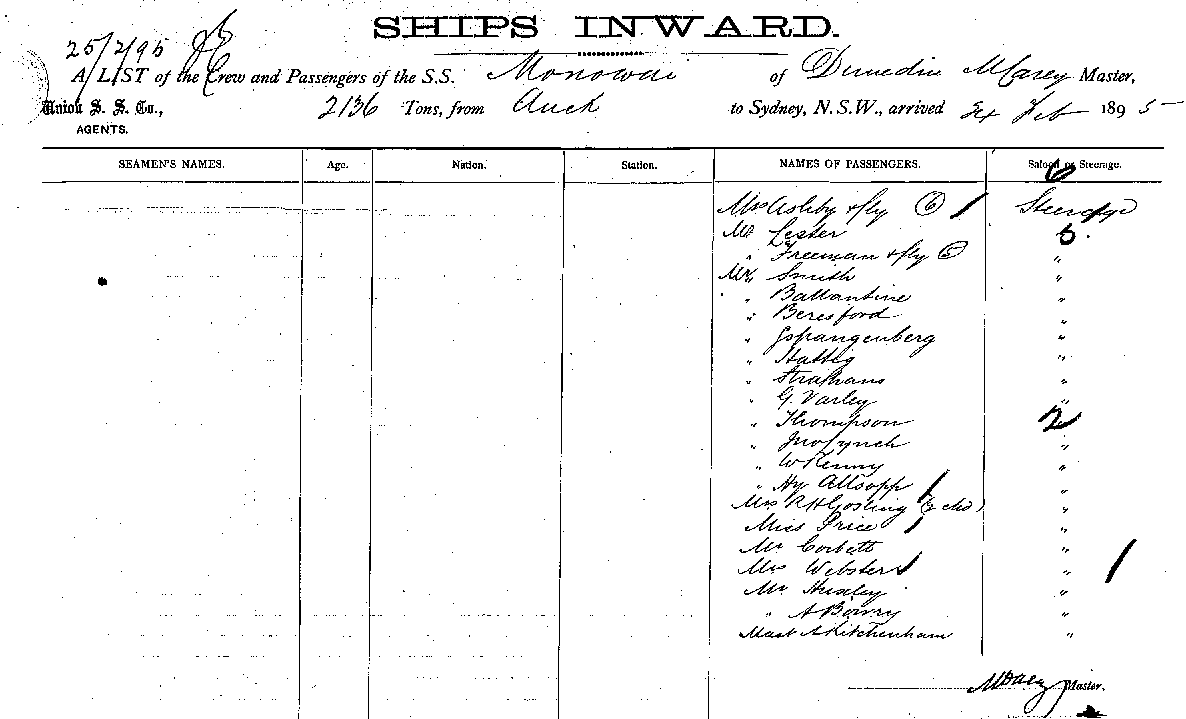 SHIPS INWARD.
25/2/95
A LIST of the Crew and Passengers of the S.S. Monowai of Dunedin M Carey Master,
Union S. S. Co., 2136 Tons, from Auck to Sydney, N.S.W., arrived 24 Feb 1895
AGENTS.
SEAMEN'S NAMES. Age. Nation. Station. NAMES OF PASSENGERS. Saloon or Steerage.
6
Mrs Ashby & fly (6) Steerage
Mr Lester 5
" Freeman & fly (5) "
Mr Smith "
" Ballantine "
" Beresford "
" Spangenberg "
" "
" "
" G. Varley "
" Thompson 2
" Jno Lynch "
" W Kenny "
" Hy Allsopp "
Mrs R H Gosling (2 chd) "
Miss Price "
Mr Corbett "
Mrs Webster "
Mr Huxley "
" A Bowry "
Mast A Kitchenham "
M Carey Master.